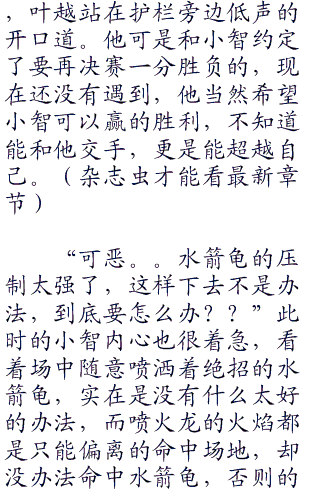 ，叶越站在护栏旁边低声的
开口道。他可是和小智约定
了要再决赛一分胜负的，现
在还没有遇到，他当然希望
小智可以赢的胜利，不知道
能和他交手，更是能超越自
己。（杂志虫才能看最新章
节）
“可恶。。水箭龟的压
制太强了，这样下去不是办
法，到底要怎么办？？”此
时的小智内心也很着急，看
着场中随意喷洒着绝招的水
箭龟，实在是没有什么太好
的办法，而喷火龙的火焰都
是只能偏离的命中场地，却
没办法命中水箭龟，否则的